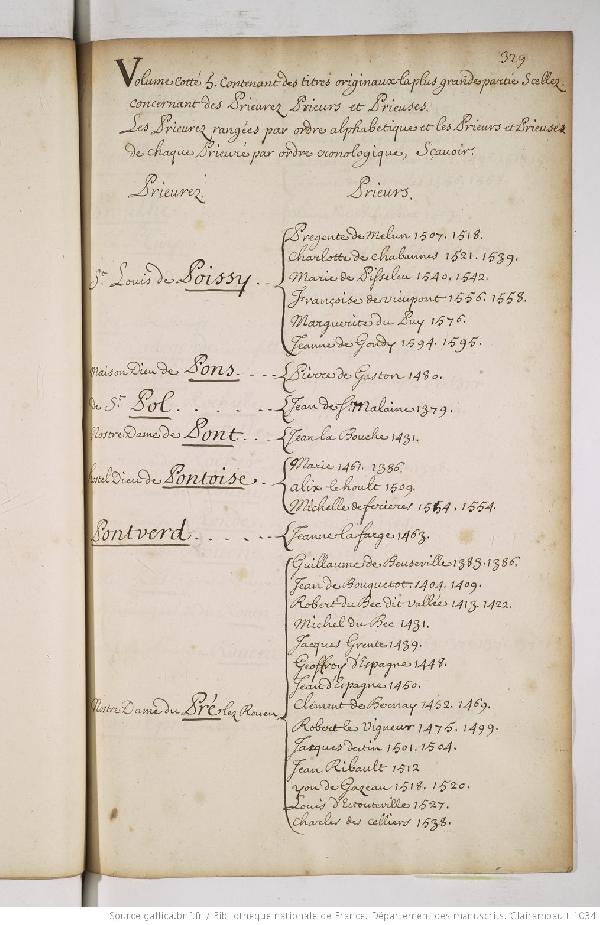 329
Volume cotté h. Contenant des titres originaux la plus grande partie Scellez.
concernant des Prieurez Prieurs et Prieuses.
Les Prieurez rangées par ordre alphabetique et les Prieurs et Prieuses
de chaque Prieuré par ordre cronologique, Sçavoir.
Prieurez Prieurs.
St. Louis de Poissy . .
Pregente de Melun 1507. 1518.
Charlotte de chabannes 1521. 1539.
Marie de Pisseleu 1540. 1542.
Françoise de vieupont 1556. 1558.
Marguerite du Puy 1576.
Jeanne de Gondy 1594. 1595.
Maison Dieu de Pons. . . . . Pierre de Gaston 1480.
de St. Pol. . . . . . . Jean de St. Malaine 1379.
Nostre Dame de Pont. . . . Jean la Bouche 1431.
hostel Dieu de Pontoise . .
Marie 1461. 1386.
alix le hoult 1509.
Michelle de ferieres 1554. 1554.
Pontverd . . . . . . Jeanne la farge 1463.
Nostre Dame du Pré lez Rouen
Guillaume de Beuseville 1383. 1386.
Jean de Bouquetot 1404. 1409.
Robert du Bec dit vallée 1413. 1422.
Michel du Bec 1431.
Jacques Grente 1439.
Geoffroy d'Espagne 1448.
Jean d'Espagne 1450.
Clement de Bernay 1452. 1469.
Robert le Vigneur 1475. 1499.
Jacques 1501. 1504.
Jean Ribault 1512
yvon de Gazeau 1518. 1520.
Louis d'Estouteville 1527.
Charles des celliers 1538.
Source gallica.bnf.fr / Bibliothèque nationale de France. Département des manuscrits. Clairambault 1034